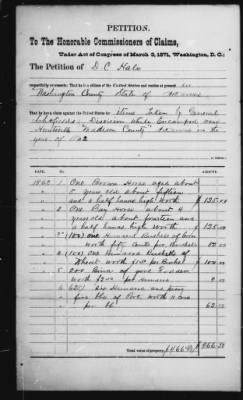 PETITION.
To The Honorable Commissioners of Claims,
Under Act of Congress of March 3, 1871, Washington, D. C.
The Petition of D C Hale
respectfully represents, that he is a citizen of the United States and resides at present in
Washington County State of
That he has a claim against the United States for Stores Taken by General
Schofields Division while Encamped near
Huntsville Madison County in the
year of 1862
1862 1 One Brown Horse aged about
years old about fifteen
and a half hands high worth $ 135.00
2 One Bay Horse about 4
years old about fourteen and
a half hands high worth $ 135.00
3 (100) One Hundred Bushels of Corn
worth fifty cents per bushel 50.00
4 (100) One Hundred Bushels of
Wheat worth $1.00 per Bushel 100.00
5 200 Bins of good Fodder
worth per Hundred
6 Six Hundred and
five lbs of Pork worth
per lb